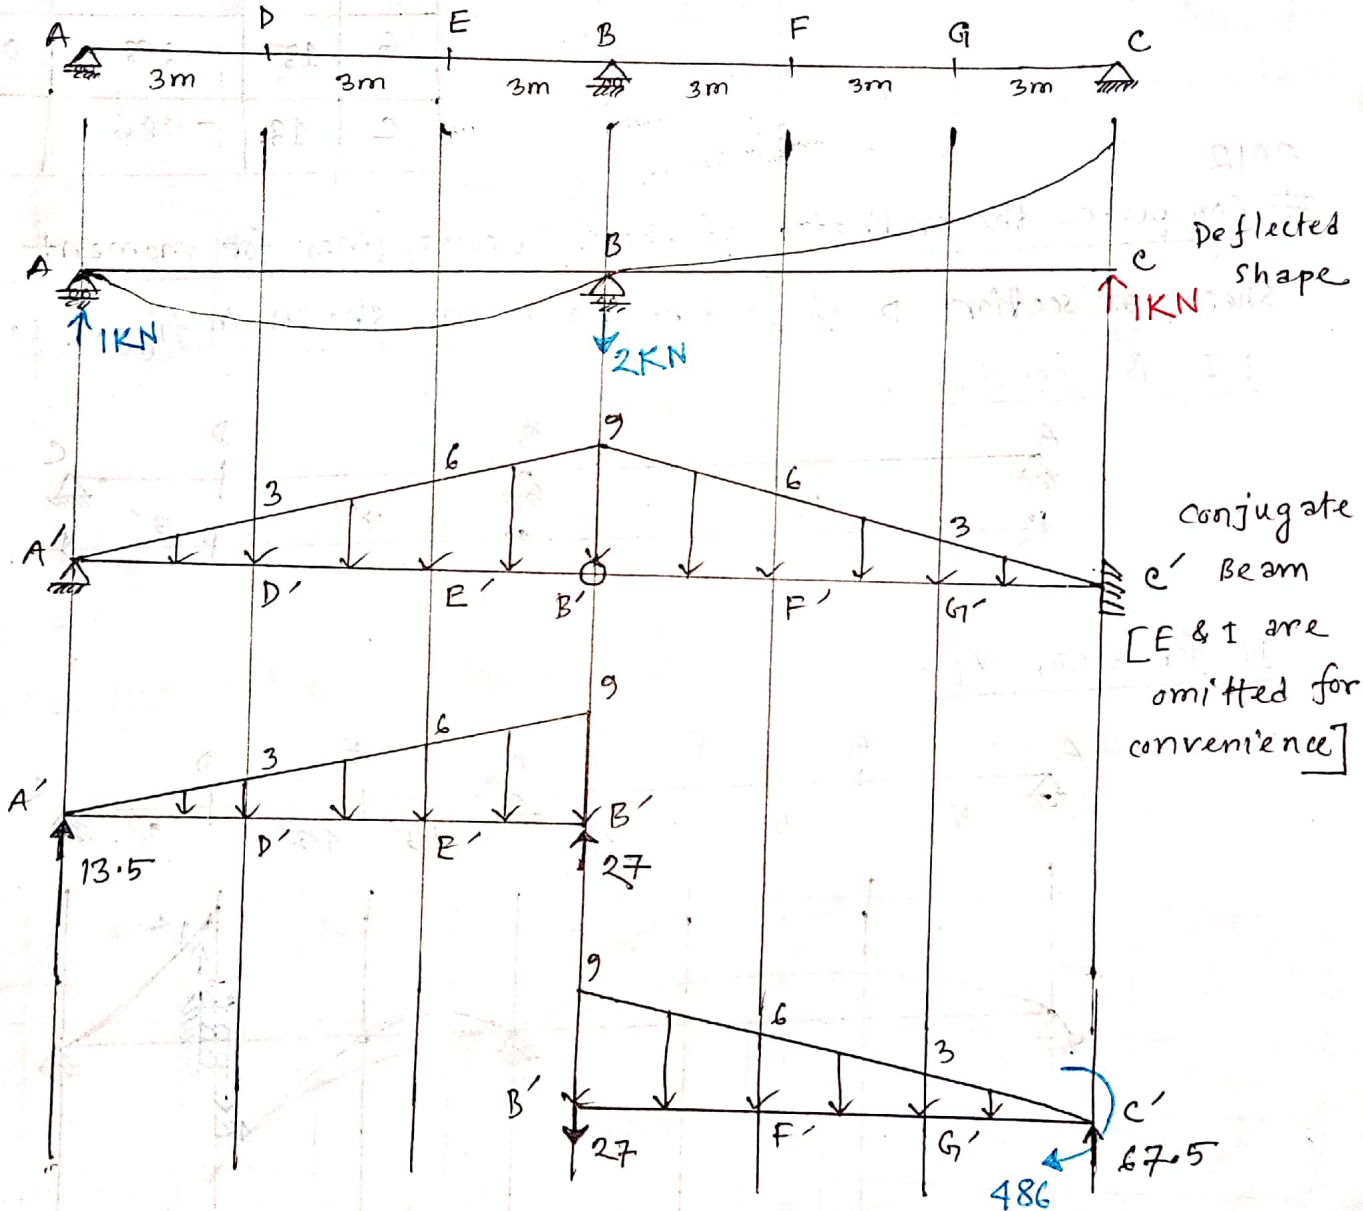 A D E B F G C
3m 3m 3m 3m 3m 3m
A B C
Deflected
shape
1KN 2KN 1KN
9
6 6
3 3
A' D' E' B' F' G' C'
Conjugate
Beam
[E & I are
omitted for
convenience]
9
6
3
A' D' E' B'
13.5 27
9
6
3
B' F' G' C'
27 67.5
486